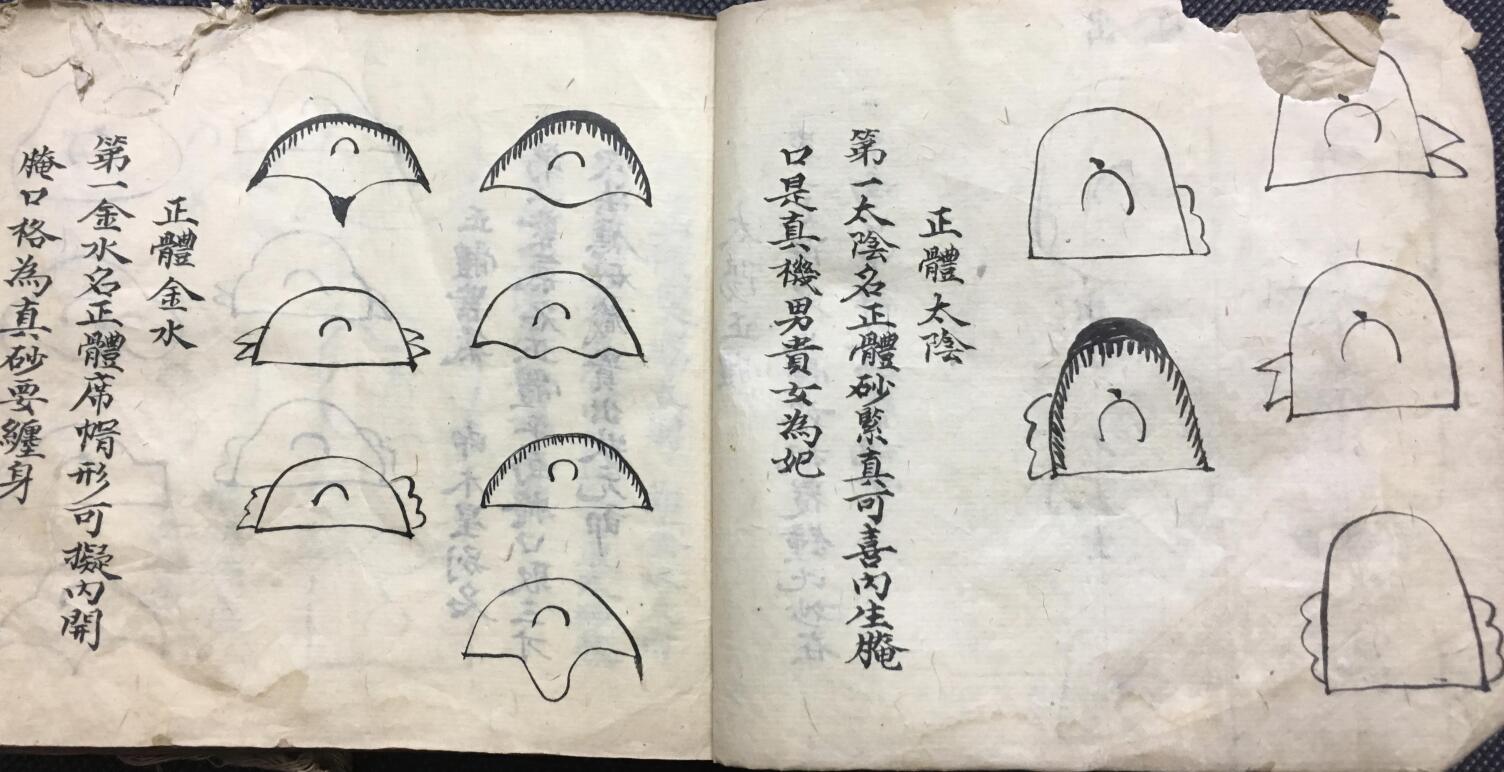 正體太陰
第一太陰名正體砂緊真可喜內生腌
口是真機男貴女為妃
正體金水
第一金水名正體席帽形可擬內開
腌口格為真砂要纏身